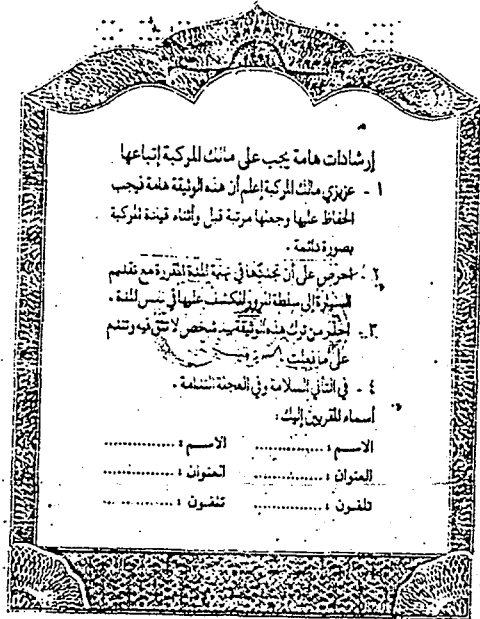 إرشادات هامة يجب على مالك المركبة إتباعها
١ - عزيزي مالك المركبة إعلم أن هذه الوثيقة هامة فيجب
الحفاظ عليها وجعلها مرتبة قبل وأثناء قيادة المركبة
بصورة دائمة .
٢ - احرص على أن تجددها في نهاية المدة المقررة مع تقديم
السيارة إلى سلطة المرور للكشف عليها في نفس المدة .
٣ - احذر من ترك هذه الوثيقة بيد شخص لا تثق فيه وتندم
على ما فعلت
٤ - في التأني السلامة وفي العجلة الندامة .
أسماء المقربين إليك :
الاسم : .............. الاسم : ..............
العنوان : .............. العنوان : ..............
تلفون : .............. تلفون : ..............